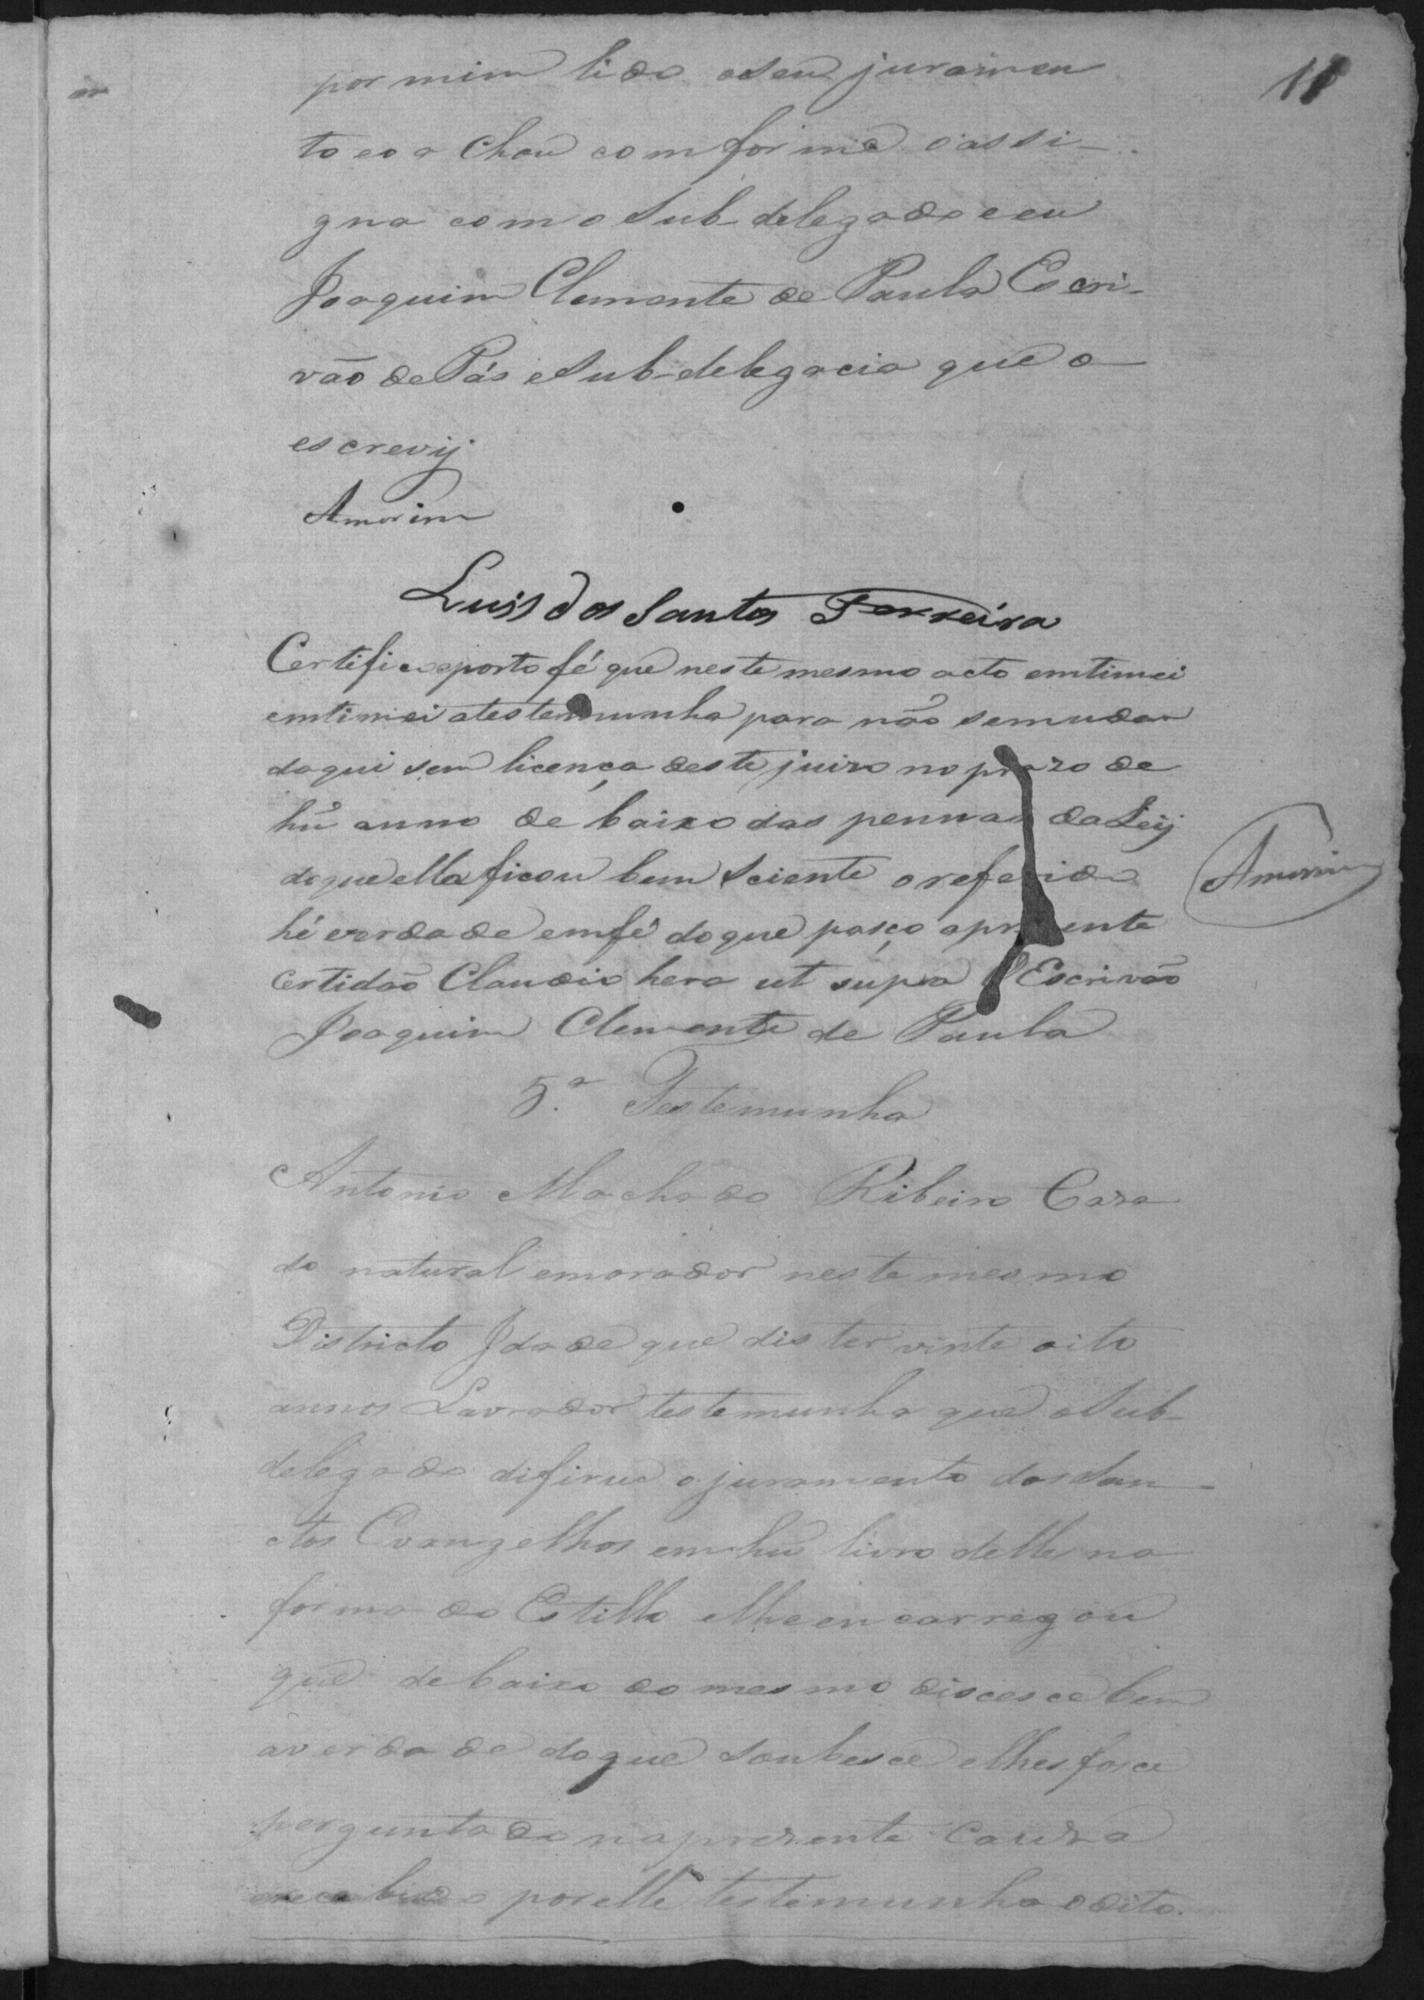 18
por mim lido o seu juramen
to eo a chou comforme o assi-
gna com o Sub delegado e eu
Joaquim Clemente de Paula Escri-
vão de Pás e Sub-delegacia que o
escrevij
Amorim
Luis dos Santos Ferreira
Certifico e porto fé que neste mesmo acto emtimei
emtimei a testemunha para não se mudar
daqui sem licença deste juizo no prazo de
hũ anno de baixo das pennas da Leij
do que ella ficou bem sciente o referido
hé verdade em fé do que pasço a prezente
certidão Claudio hera ut supra O Escrivão
Joaquim Clemente de Paula
Amorim
5.ª Testemunha
Antonio Machado Ribeiro Caza
do natural e morador neste mesmo
Districto Jdade que dis ter vinte oito
annos Lavrador testemunha que o Sub-
delegado difirio o juramento dos San-
ctos Evangelhos em hũ livro delles na
forma do Estillo e lhe encarregou
que debaixo do mesmo discesce bem
averdade do que soubesce e lhes fosce
perguntado na prezente Cauza
e recebido por elle testemunha o dito